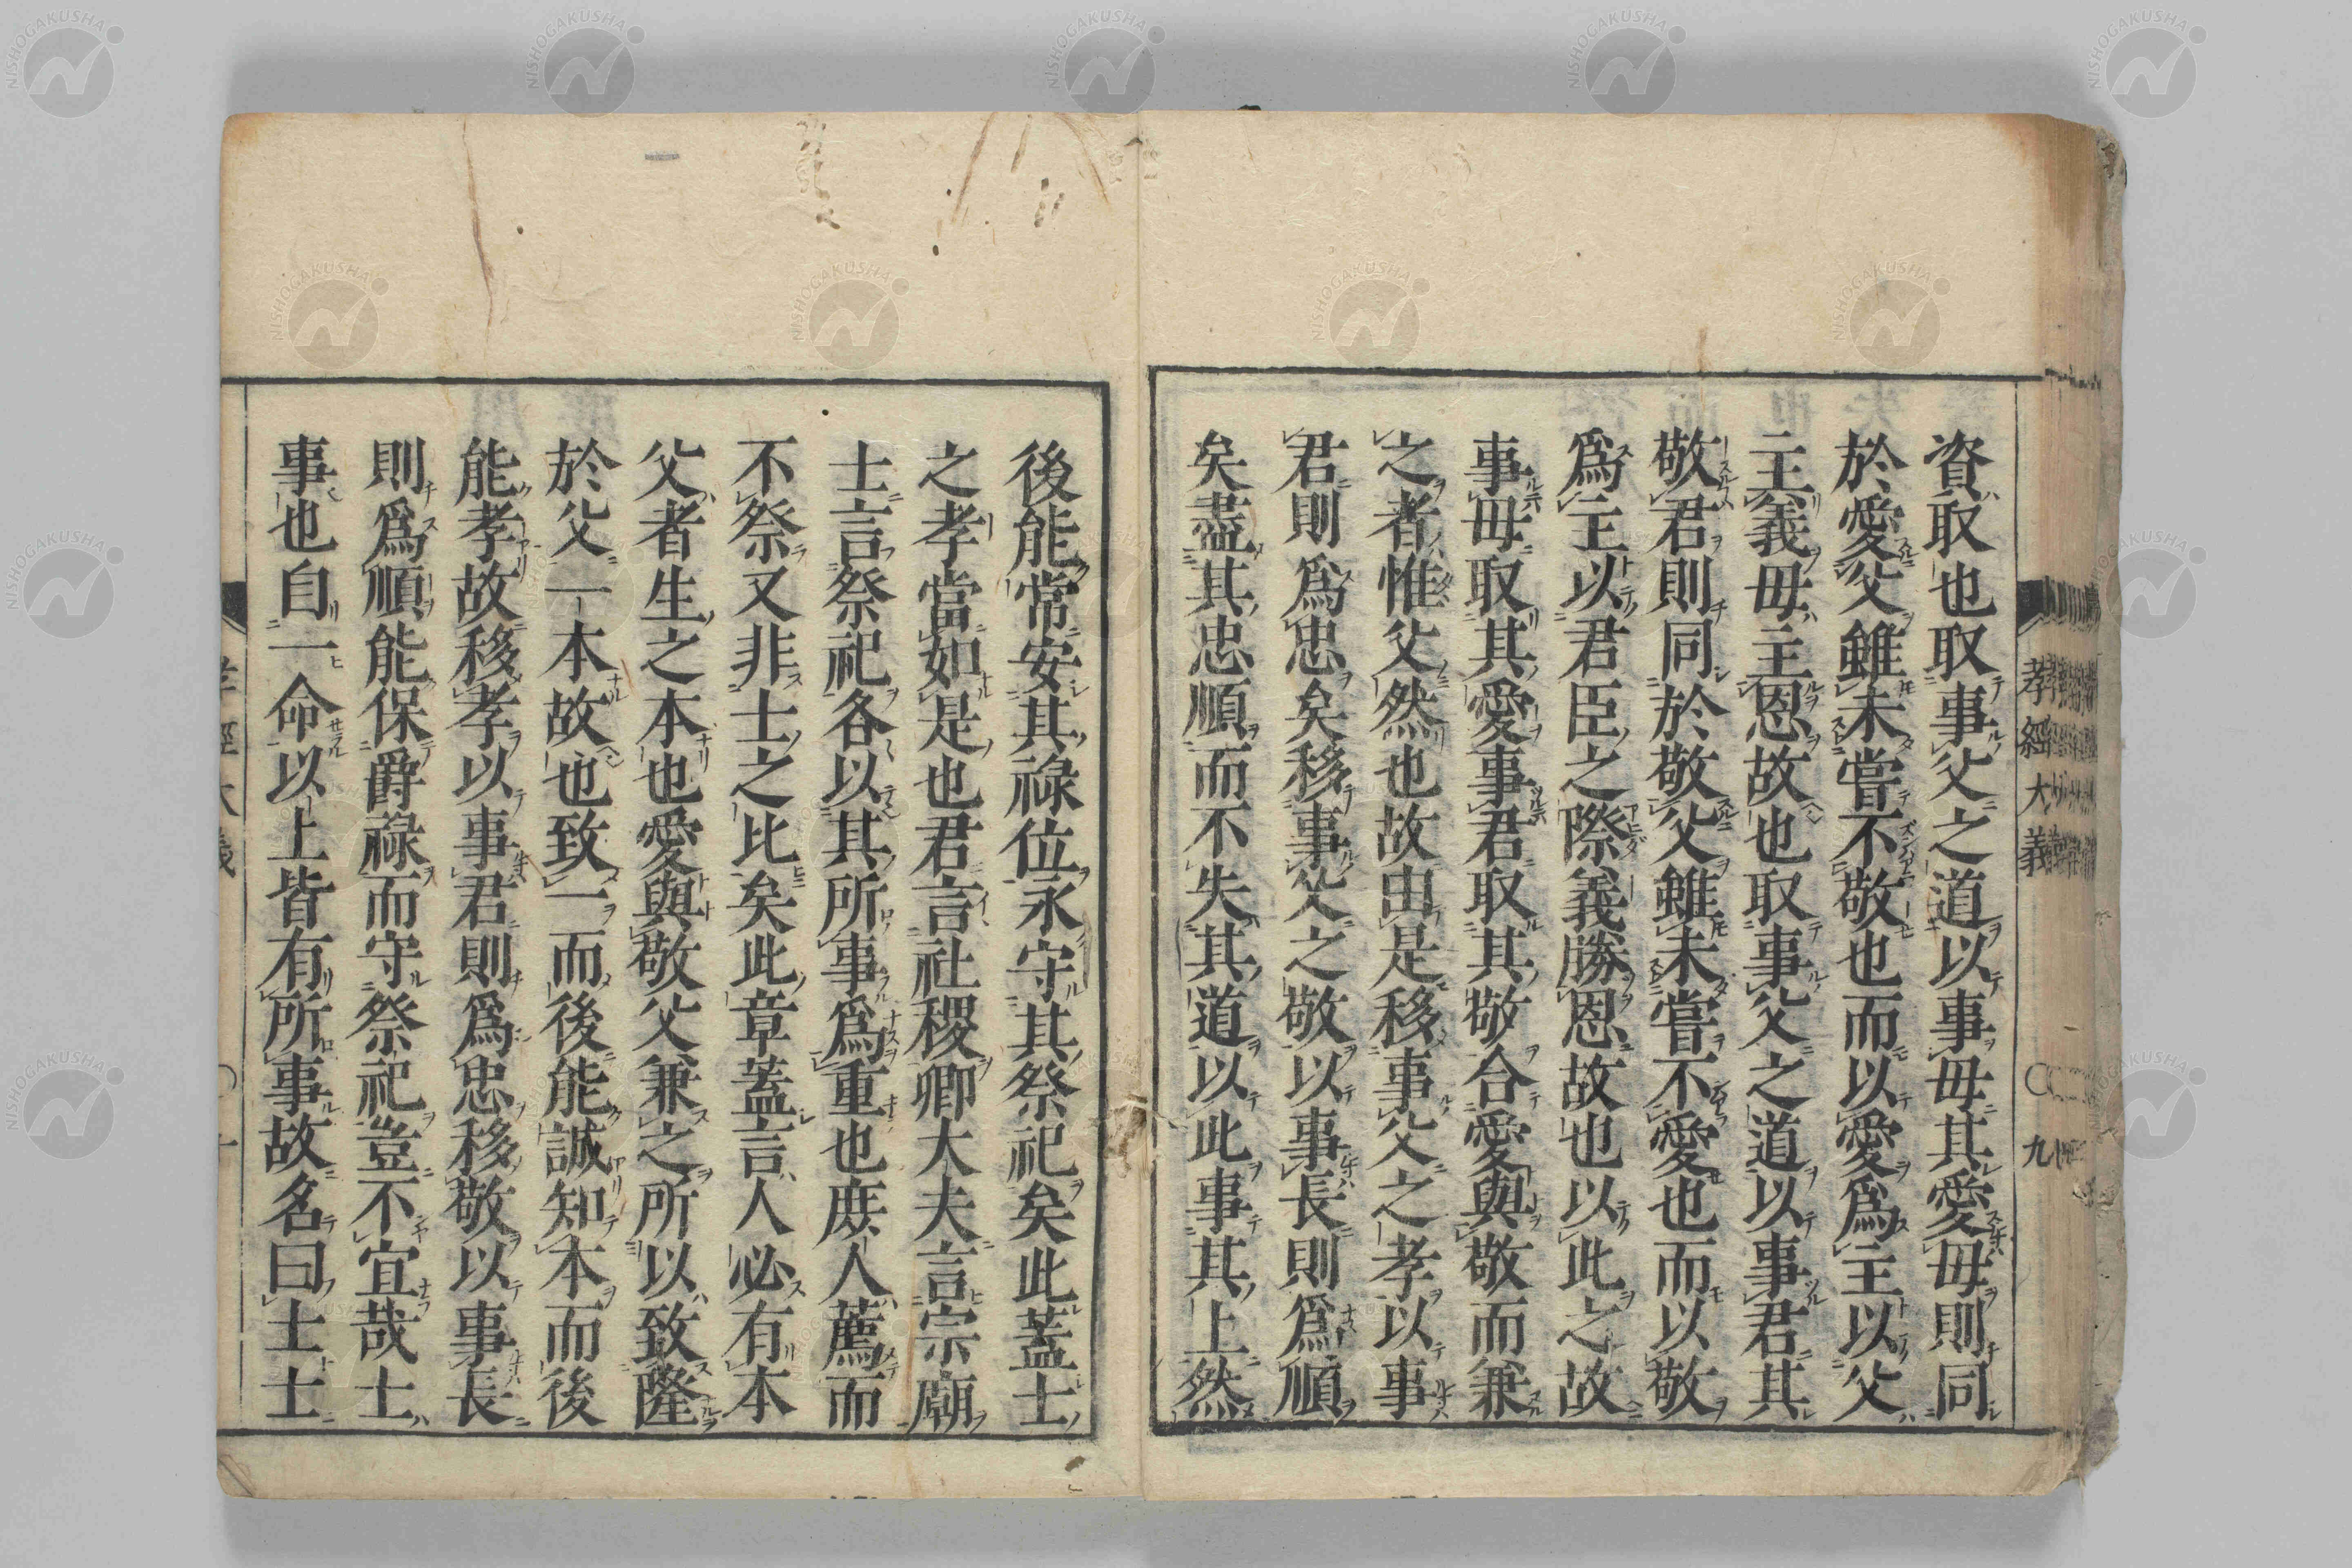 資取也取事父之道以事母其愛母則同
於愛父雖未嘗不敬也而以愛爲主以父
主義母主恩故也取事父之道以事君其
敬君則同於敬父雖未嘗不愛也而以敬
爲主以君臣之際義勝恩故也以此之故
事母取其愛事君取其敬合愛與敬而兼
之者惟父然也故由是移事父之孝以事
君則爲忠矣移事父之敬以事長則爲順
矣盡其忠順而不失其道以此事其上然
孝經大義 〇九
後能常安其祿位永守其祭祀矣此蓋士
之孝當如是也君言社稷卿大夫言宗廟
士言祭祀各以其所事爲重也庶人薦而
不祭又非士之比矣此章蓋言人必有本
父者生之本也愛與敬父兼之所以致隆
於父一本故也致一而後能誠知本而後
能孝故移孝以事君則爲忠移敬以事長
則爲順能保爵祿而守祭祀豈不宜哉士
事也自一命以上皆有所事故名曰士士